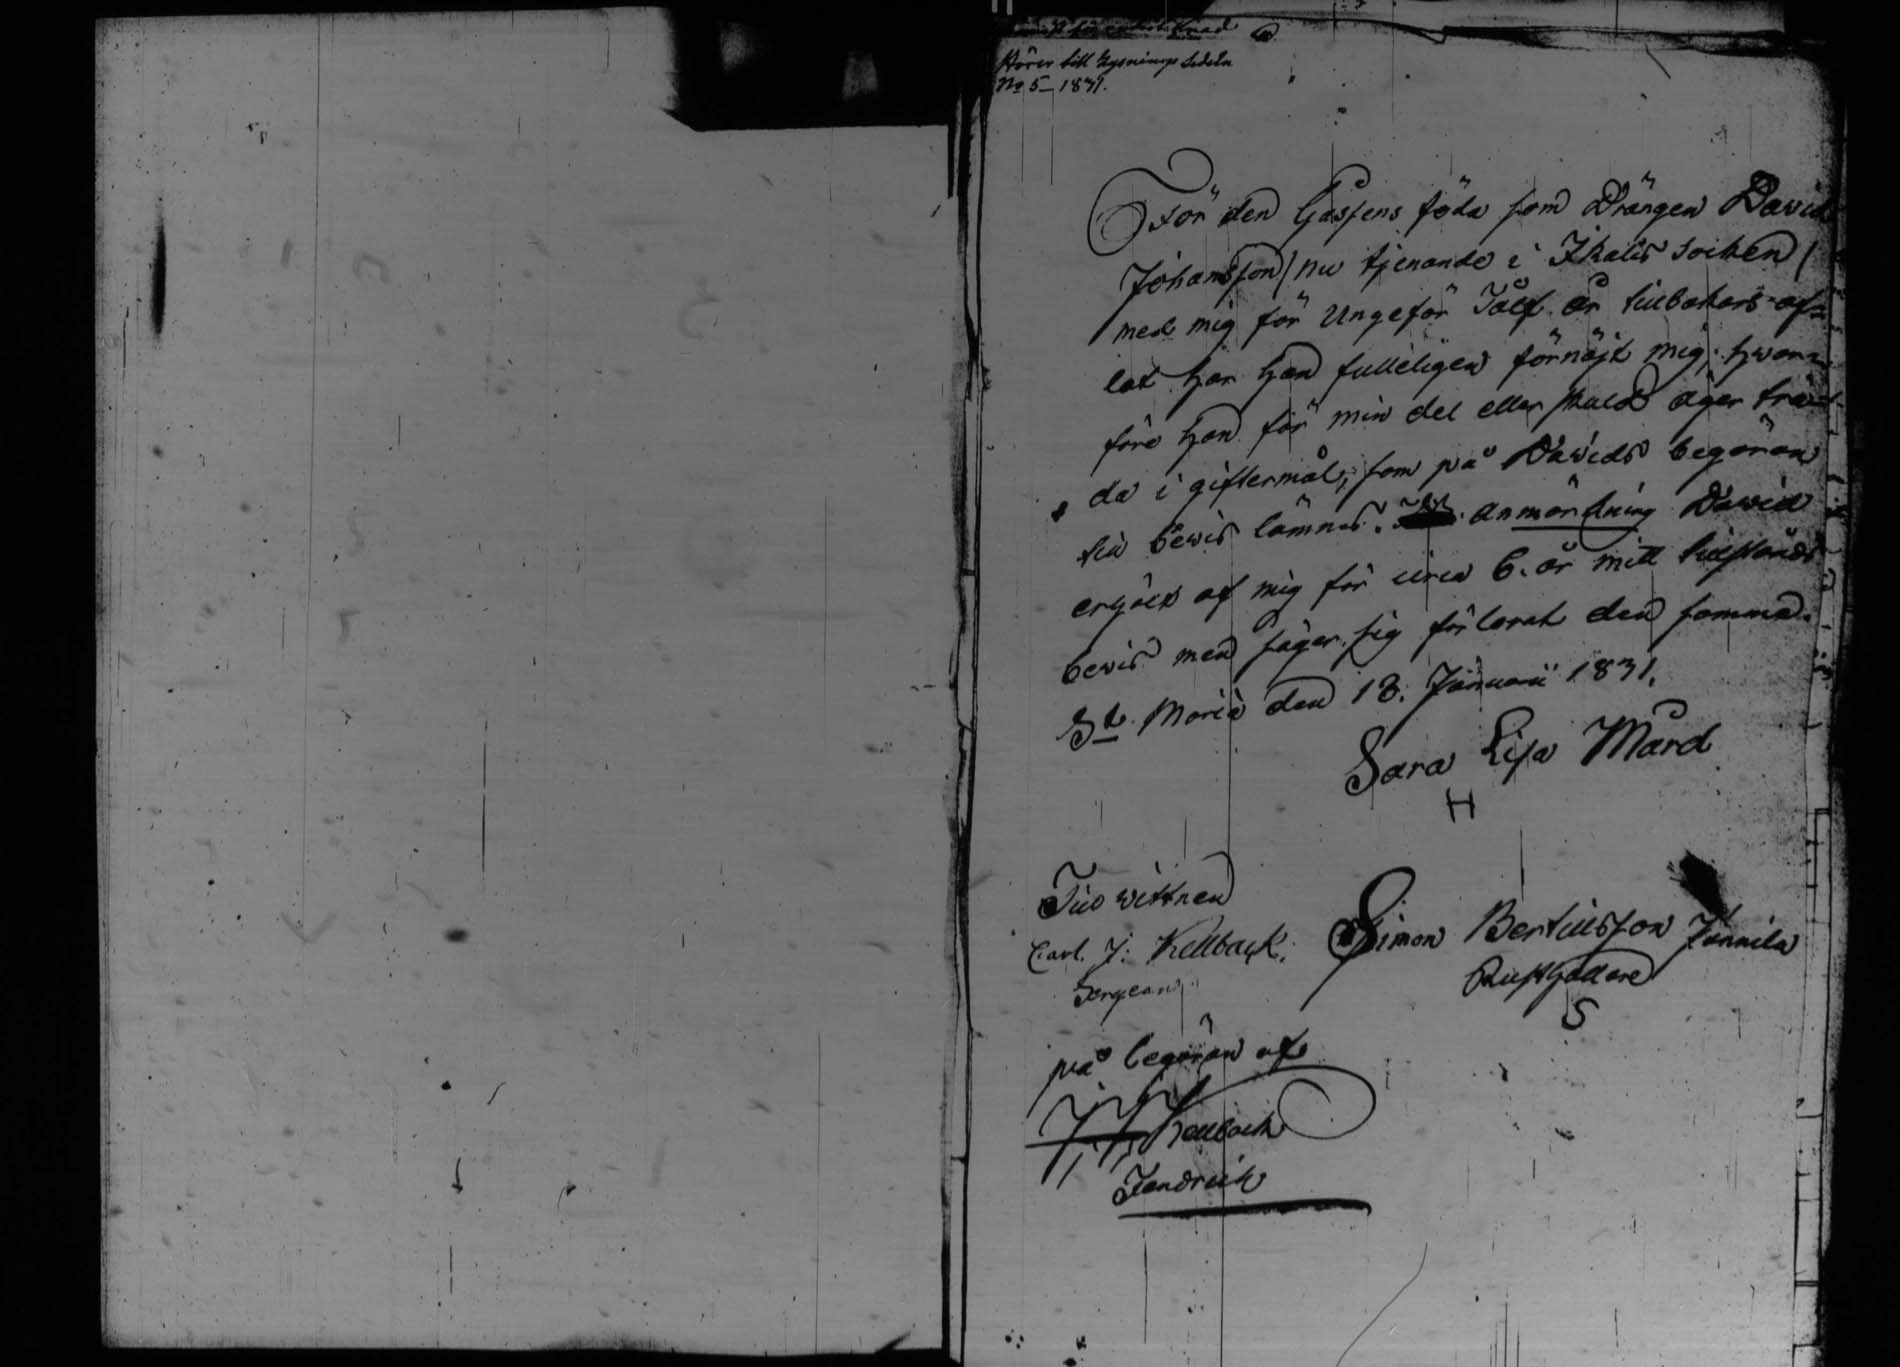 Hörer till Lysnings Sedeln
No 5 – 1831.
För den Gåssens föda som Drängen David
Johansson / nu tjenande i Ikalis socken /
med mig för ungefär Tålf år tillbakars af=
lat har han fulleligen förnöjt mig; hwar=
före han för min del eller skuld äger trä=
da i giftermål, som på Davids begäran
till bewis lämnas. anmärckning David
erhölt af mig för circa 6. år mitt tillstånds
bewis men säger sig förlorat den samma.
St. Marie den 18. Januarii 1831.
Sara Lisa Mård
H
Till wittnen
Carl J: Kellback.
Sergeant
Simon Bertilsson Junnila
Rusthållare
S
på begäran af
Kellback
Fendrick